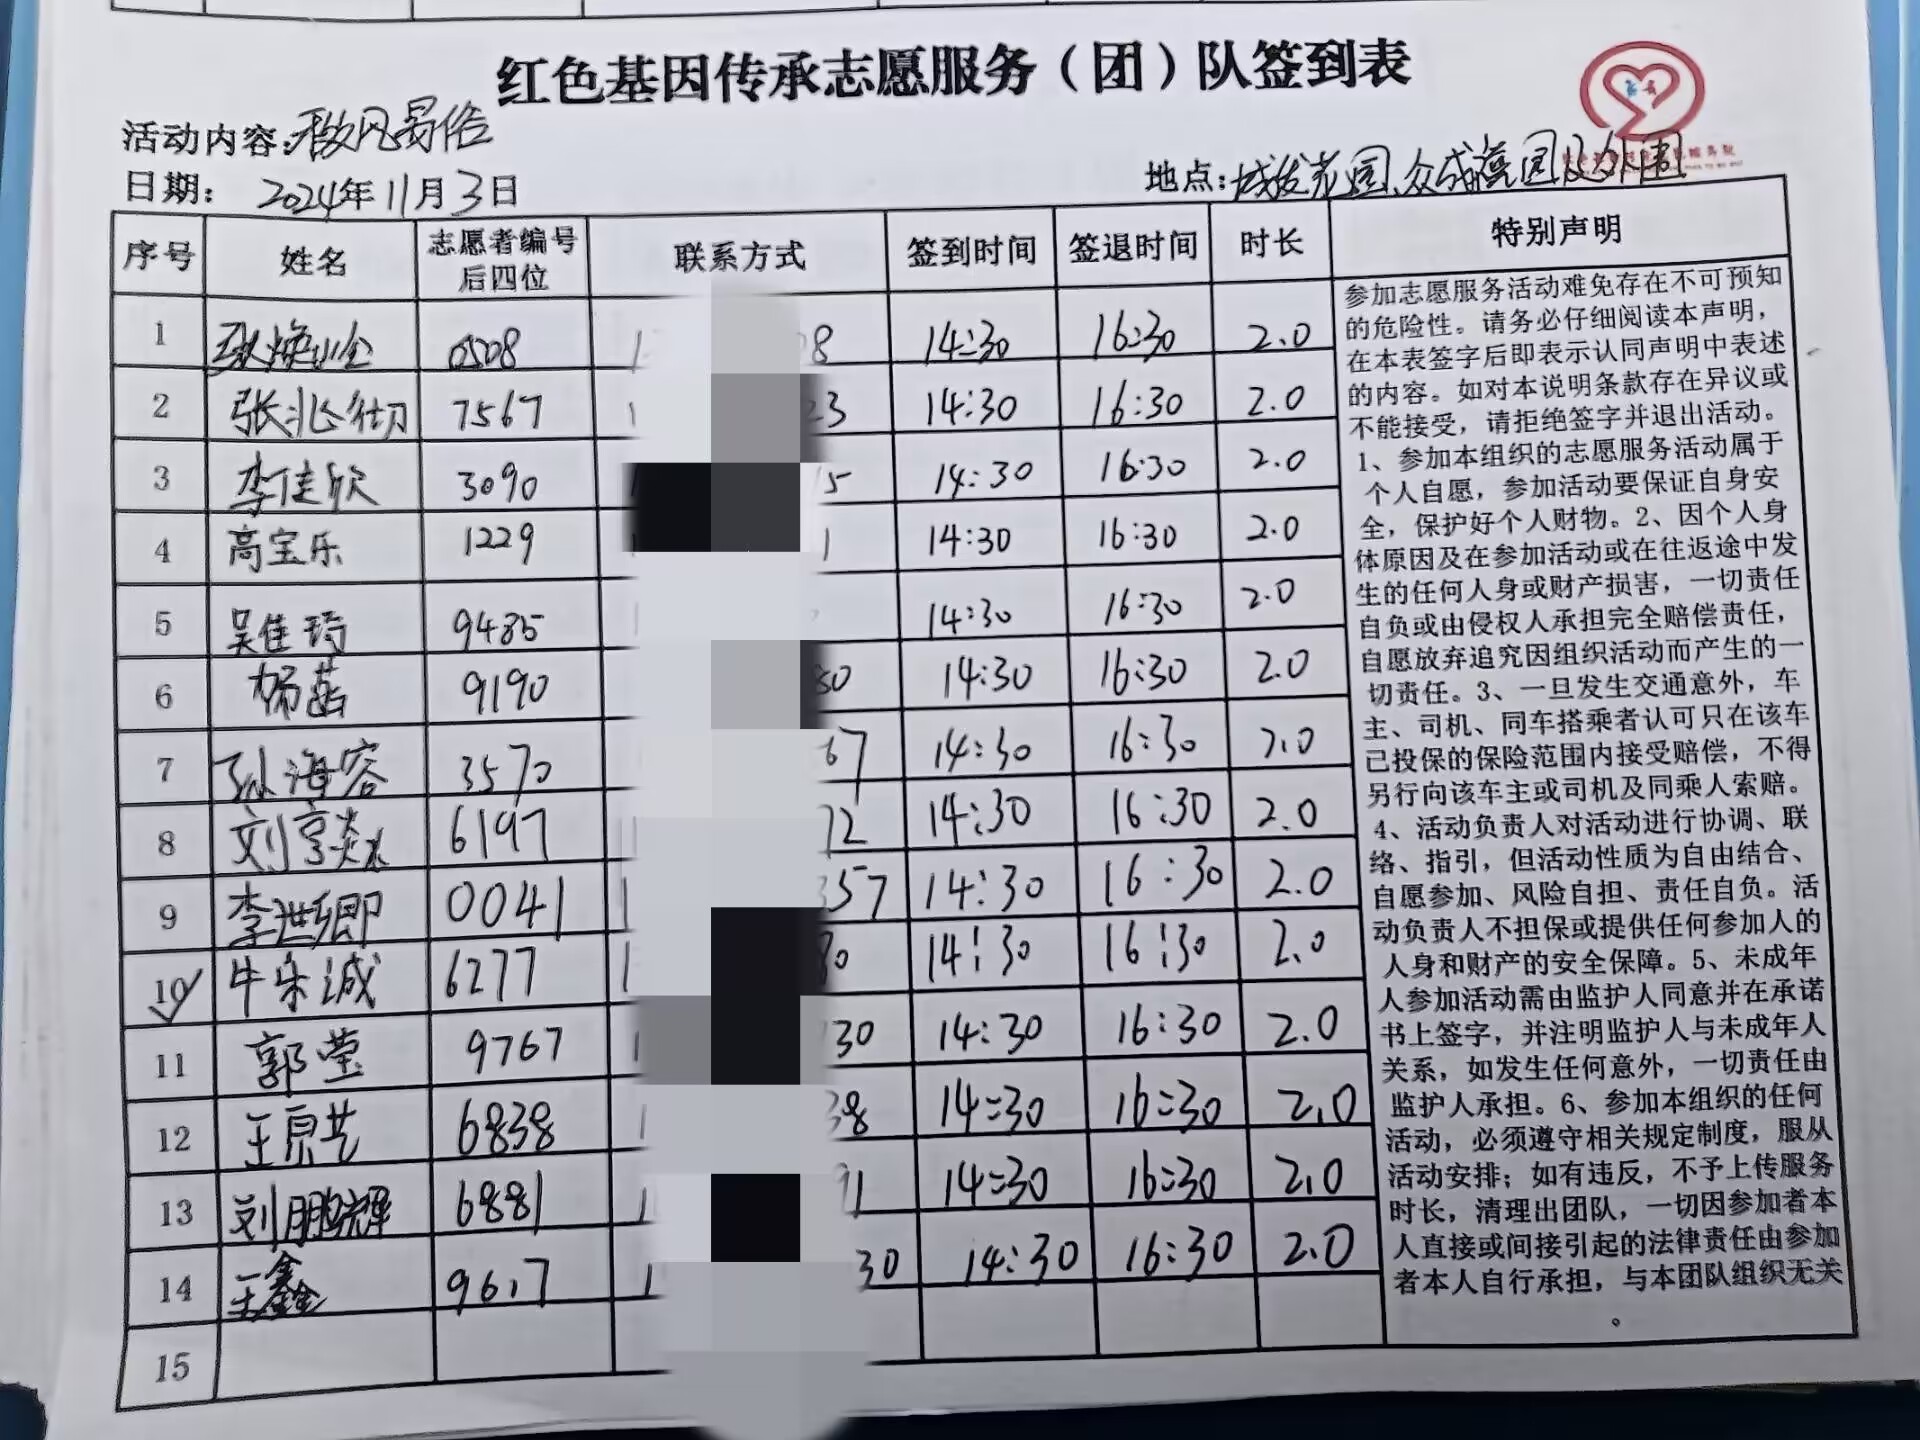 红色基因传承志愿服务（团）队签到表
活动内容：移风易俗
日期： 2024年11月3日
地点：城发花园、众成 园及外围
序号 姓名 志愿者编号后四位 联系方式 签到时间 签退时间 时长 特别声明
1 0508 1 8 14:30 16:30 2.0
2 张兆彻 7567 1 23 14:30 16:30 2.0
3 李佳欣 3090 1 15 14:30 16:30 2.0
4 高宝乐 1229 1 14:30 16:30 2.0
5 吴佳琦 9485 14:30 16:30 2.0
6 杨茹 9190 30 14:30 16:30 2.0
7 孙海容 3570 67 14:30 16:30 2.0
8 刘 6197 12 14:30 16:30 2.0
9 李世卿 0041 1 357 14:30 16:30 2.0
10 牛宋诚 6277 1 80 14:30 16:30 2.0
11 郭莹 9767 1 130 14:30 16:30 2.0
12 王 6838 1 38 14:30 16:30 2.0
13 刘鹏辉 6881 1 91 14:30 16:30 2.0
14 王鑫 9617 1 30 14:30 16:30 2.0
15
参加志愿服务活动难免存在不可预知
的危险性。请务必仔细阅读本声明，
在本表签字后即表示认同声明中表述
的内容。如对本说明条款存在异议或
不能接受，请拒绝签字并退出活动。
1、参加本组织的志愿服务活动属于
个人自愿，参加活动要保证自身安
全，保护好个人财物。2、因个人身
体原因及在参加活动或在往返途中发
生的任何人身或财产损害，一切责任
自负或由侵权人承担完全赔偿责任，
自愿放弃追究因组织活动而产生的一
切责任。3、一旦发生交通意外，车
主、司机、同车搭乘者认可只在该车
已投保的保险范围内接受赔偿，不得
另行向该车主或司机及同乘人索赔。
4、活动负责人对活动进行协调、联
络、指引，但活动性质为自由结合、
自愿参加、风险自担、责任自负。活
动负责人不担保或提供任何参加人的
人身和财产的安全保障。5、未成年
人参加活动需由监护人同意并在承诺
书上签字，并注明监护人与未成年人
关系，如发生任何意外，一切责任由
监护人承担。6、参加本组织的任何
活动，必须遵守相关规定制度，服从
活动安排；如有违反，不予上传服务
时长，清理出团队，一切因参加者本
人直接或间接引起的法律责任由参加
者本人自行承担，与本团队组织无关
。